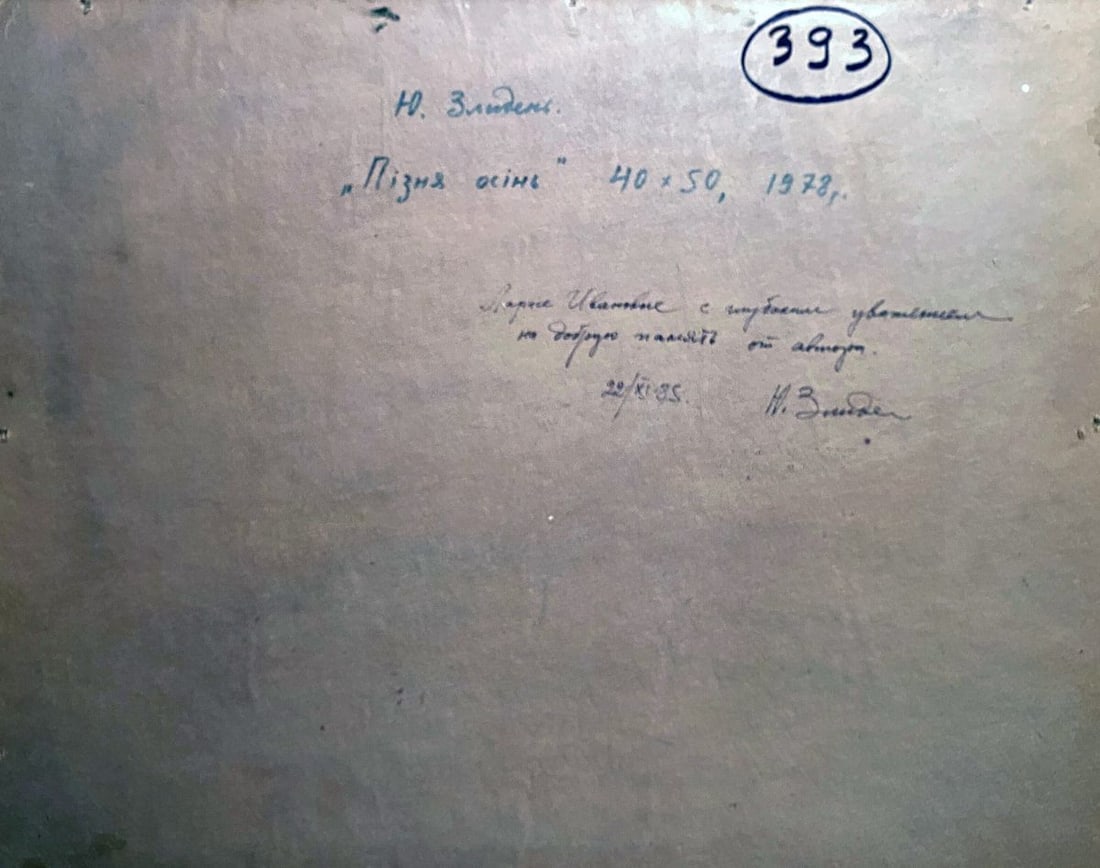 393
Ю. Злидень.
„Пізня осінь" 40 x 50, 1978 г.
Ларисе Ивановне с глубоким уважением
на добрую память от автора.
22/XI-85. Ю. Злиден